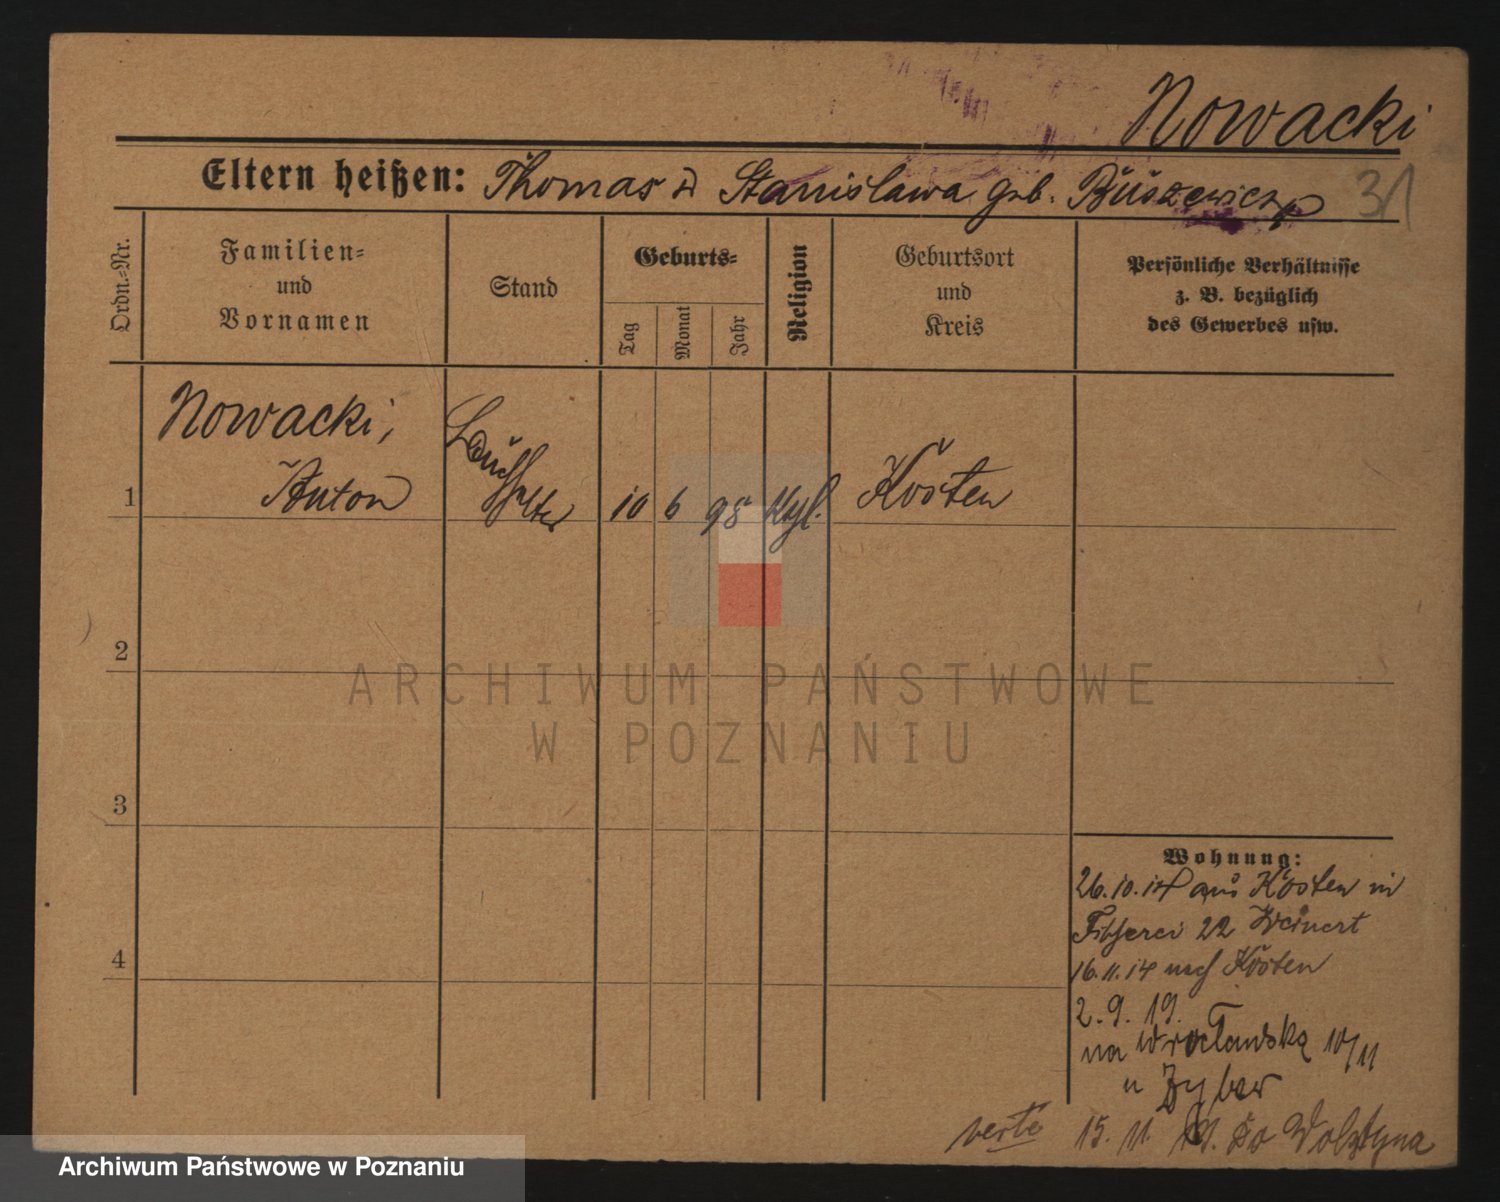 Nowacki
Eltern heißen: Thomas u Stanislawa geb. Buszewicz
31
Ordn.=Nr.
Familien=
und
Vornamen
Stand
Geburts=
Tag
Monat
Jahr
Religion
Geburtsort
und
Kreis
Persönliche Verhältnisse
z. B. bezüglich
des Gewerbes usw.
1
Nowacki,
Anton
Buchhalter
10
6
98
Kath.
Kosten
2
3
4
ARCHIWUM PAŃSTWOWE
W POZNANIU
Wohnung:
26.10.14 aus Kosten in
22 Weinert
16.11.14 nach Kosten
2.9.19.
na Wrocławską 10/11
u
verte 15.11. 19. do Wolsztyna
Archiwum Państwowe w Poznaniu